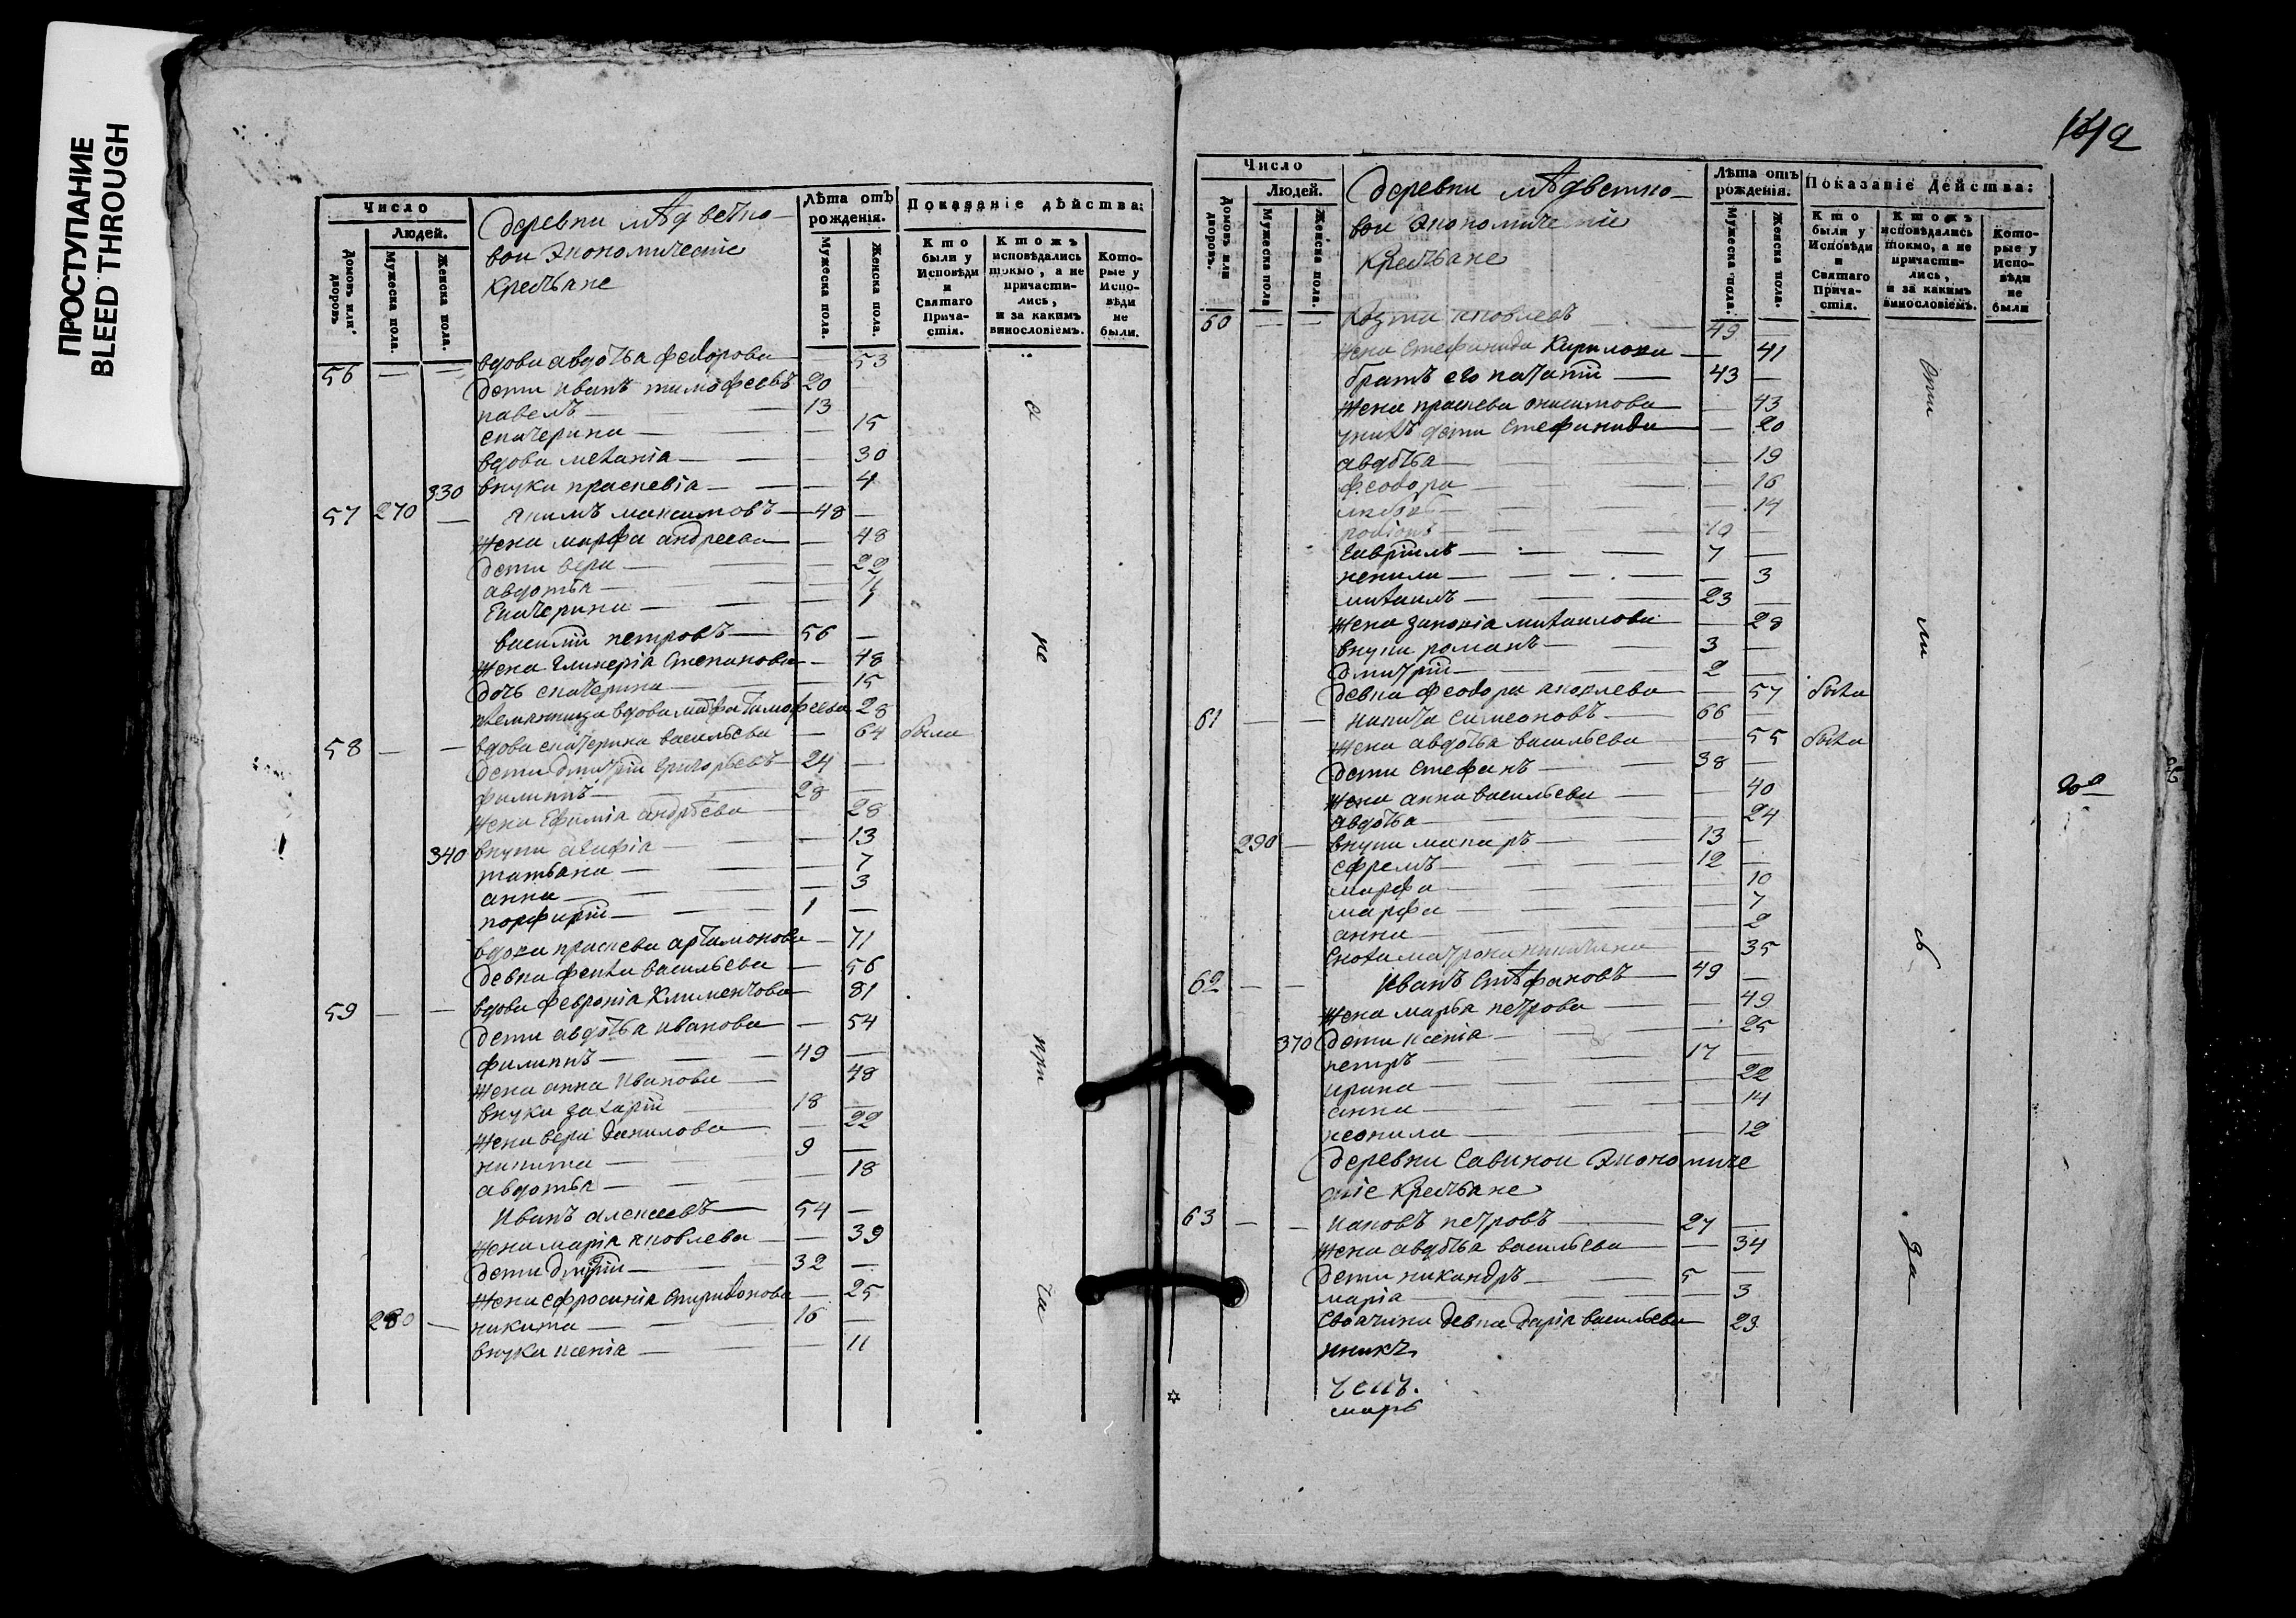 ПРОСТУПАНИЕ
BLEED THROUGH
Число
Людей.
Домовъ или дворовъ
Мужеска пола.
Женска пола.
Деревни мѣдветко-
вои Экономическіе
Крестьяне
Лѣта отъ рожденія.
Мужеска пола.
Женска пола.
Показаніе дѣйства:
Кто были у Исповѣди и Святаго Прича-стія.
Ктожъ исповѣдались токмо, а не причасти-лись, и за какимъ винословіемъ.
Кото-рые у Испо-вѣди не были.
56 — — вдова авдотья федорова — 53
дети иванъ тимофеевъ 20
павелъ — 13
екатерина — 15
вдова меланія — 30
330 внука праскевіа — 4
57 270 — якимъ максимовъ — 48 —
жена марфа андреева — 48
дети вера — 22
авдотья —
Екатерина — 1
василій петровъ — 56 —
жена Гликерія Степанова — 48
дочь екатерина — 15
племянница вдова тимофеева 28
58 — — вдова екатерина васильева — 64 была
дети дмитрій григорьевъ — 24 —
филиппъ — 28 —
жена Ефимія андрѣева — 28
340 внуки агафія — 13
татьяна — 7
анна — 3
порфирій — 1 —
вдова праскева артамонова — 71
девка фекла васильева — 56
59 — — вдова февронія Климентова 81
дети авдотья иванова — 54
филиппъ — 49 —
жена анна Иванова — 48
внука захарій — 18 —
жена вера данилова — 22
никита — 9 —
авдотья — 18
Иванъ алексеевъ — 54 —
жена марія яковлева — 39
дети дмитрій — 32 —
жена ефросинія Спиридонова — 25
280 — никита — 16 —
внука ксенія — 11
не
при
ча
Число
Людей.
Домовъ или дворовъ.
Мужеска пола
Женска пола.
Деревни мѣдветко-
вои Экономическіе
Крестьяне
Лѣта отъ рожденія.
Мужеска пола.
Женска пола.
Показаніе Действа:
Кто были у Исповѣди и Святаго Прича-стія.
Ктожъ исповѣдались токмо, а не причасти-лись, и за какимъ винословіемъ.
Кото-рые у Испо-вѣди не были
60 — — козма яковлевъ 49 —
жена Стефанида Кирилова — 41
братъ его игнатій — 43 —
жена праскева онисимова — 43
у нихъ дети Стефанида — 20
авдотья — 19
феодора — 16
любовь — 14
родіонъ — 10 —
Гавріилъ — 7 —
— 3
михаилъ — 23 —
жена михаилова — 28
внуки романъ — 3 —
дмитрій — 2 —
девка феодора яковлева — 57 была
61 — — никита симеоновъ — 66 —
жена авдотья васильева — 55 была
дети Стефанъ — 38 —
жена анна васильева — 40
авдотья — 24
290 — внуки макаръ — 13 —
ефремъ — 12 —
марфа — 10
марфа — 7
анна — 2
сноха матрона никитина — 35
62 — — иванъ Стѣфановъ — 49 —
жена марья петрова — 49
370 дети ксенія — 25
петръ — 17 —
ирина — 22
анна — 14
неонила — 12
деревни Савинои Экономиче
скіе Крестьяне
63 — — иаковъ петровъ — 27 —
жена авдотья васильева — 34
дети никандръ — 5 —
марія — 3
своячина девка дарія васильева 23
сти
ли
съ
за